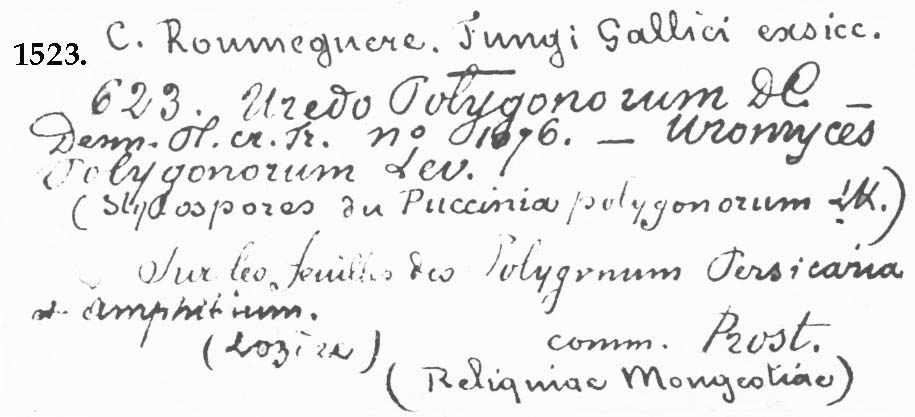 1523. C. Roumeguere. Fungi Gallici exsicc.
623. Uredo Polygonorum DC. —
Desm. Pl. cr. Fr. no 1676. — Uromyces
Polygonorum Lev.
(Stylospores du Puccinia polygonorum LK.)
Sur les feuilles des Polygonum Persicaria
et amphibium.
(Lozère) comm. Prost.
(Reliquiae Mougeotiae)